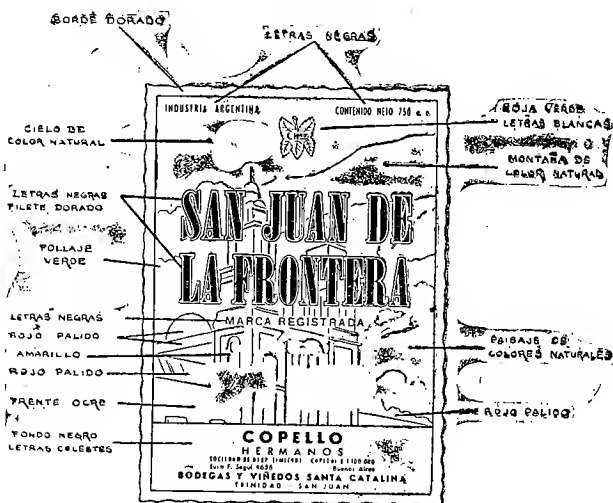 BORDE DORADO
LETRAS NEGRAS
INDUSTRIA ARGENTINA
CONTENIDO NETO 750 c. c.
HOJA VERDE
LETRAS BLANCAS
CIELO DE
COLOR NATURAL
MONTAÑA DE
COLOR NATURAL
LETRAS NEGRAS
FILETE DORADO
SAN JUAN DE
LA FRONTERA
FOLLAJE
VERDE
LETRAS NEGRAS
MARCA REGISTRADA
ROJO PALIDO
AMARILLO
PAISAJE DE
COLORES NATURALES
ROJO PALIDO
ROJO PALIDO
FRENTE OCRE
FONDO NEGRO
LETRAS CELESTES
COPELLO
HERMANOS
SOCIEDAD DE RESP. LIMITADA CAPITAL $
Juan F. Seguí 4658 Buenos Aires
BODEGAS Y VIÑEDOS SANTA CATALINA
TRINIDAD - SAN JUAN